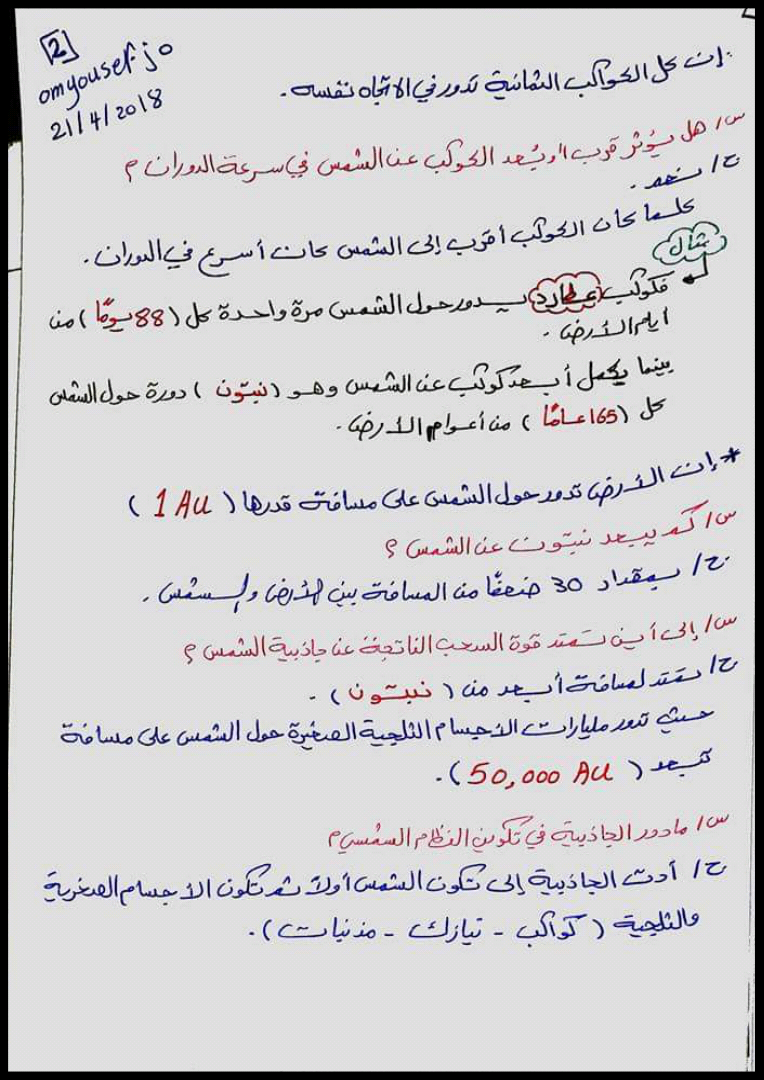 [2]
omyousef-jo
21/4/2018
إن كل الكواكب الثمانية تدور في الاتجاه نفسه.
س/ هل يؤثر قرب أو بُعد الكوكب عن الشمس في سرعة الدوران؟
ج/ نعم.
كلما كان الكوكب أقرب إلى الشمس كان أسرع في الدوران.
مثال
فكوكب عطارد يدور حول الشمس مرة واحدة كل (88 يومًا) من
أيام الأرض.
بينما يكمل أبعد كوكب عن الشمس وهو (نبتون) دورة حول الشمس
كل (165 عامًا) من أعوام الأرض.
* إن الأرض تدور حول الشمس على مسافة قدرها (1 AU)
س/ كم يبعد نبتون عن الشمس؟
ج/ بمقدار 30 ضعفًا من المسافة بين الأرض والشمس.
س/ إلى أين تمتد قوة السحب الناتجة عن جاذبية الشمس؟
ج/ تمتد لمسافة أبعد من (نبتون).
حيث تدور مليارات الأجسام الثلجية الصغيرة حول الشمس على مسافة
تبعد (50,000 AU).
س/ ما دور الجاذبية في تكوين النظام الشمسي؟
ج/ أدت الجاذبية إلى تكون الشمس أولاً ثم تكون الأجسام الصخرية
والثلجية (كواكب - نيازك - مذنبات).